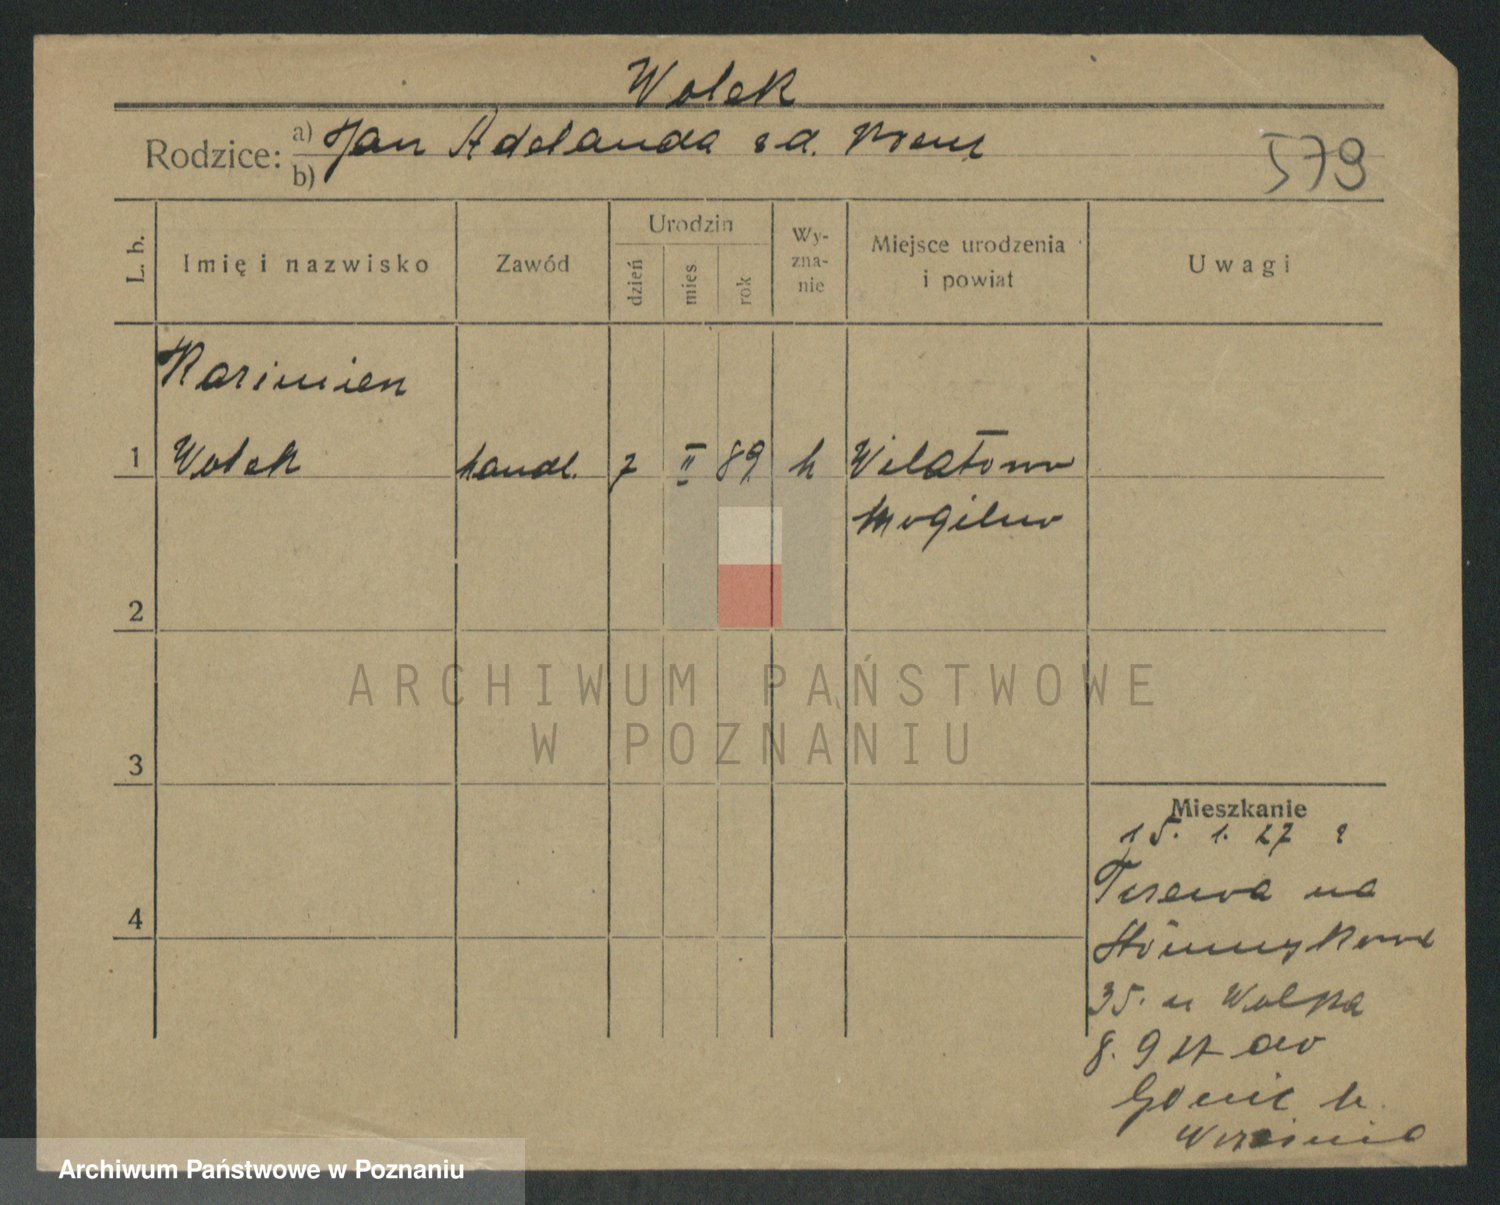 Wolek
Rodzice: a) Jan Adelanda z d.
b)
579
L. b. Imię i nazwisko Zawód Urodzin dzień mies rok Wy-zna-nie Miejsce urodzenia i powiat Uwagi
Kazimierz
1 Wolek handl. 7 II 89 k Wilatowo
Mogilno
2
ARCHIWUM PAŃSTWOWE
W POZNANIU
3
Mieszkanie
15. 1. 27 z
na
4
35. u Wolka
8. 9 27 do
k.
Września
Archiwum Państwowe w Poznaniu